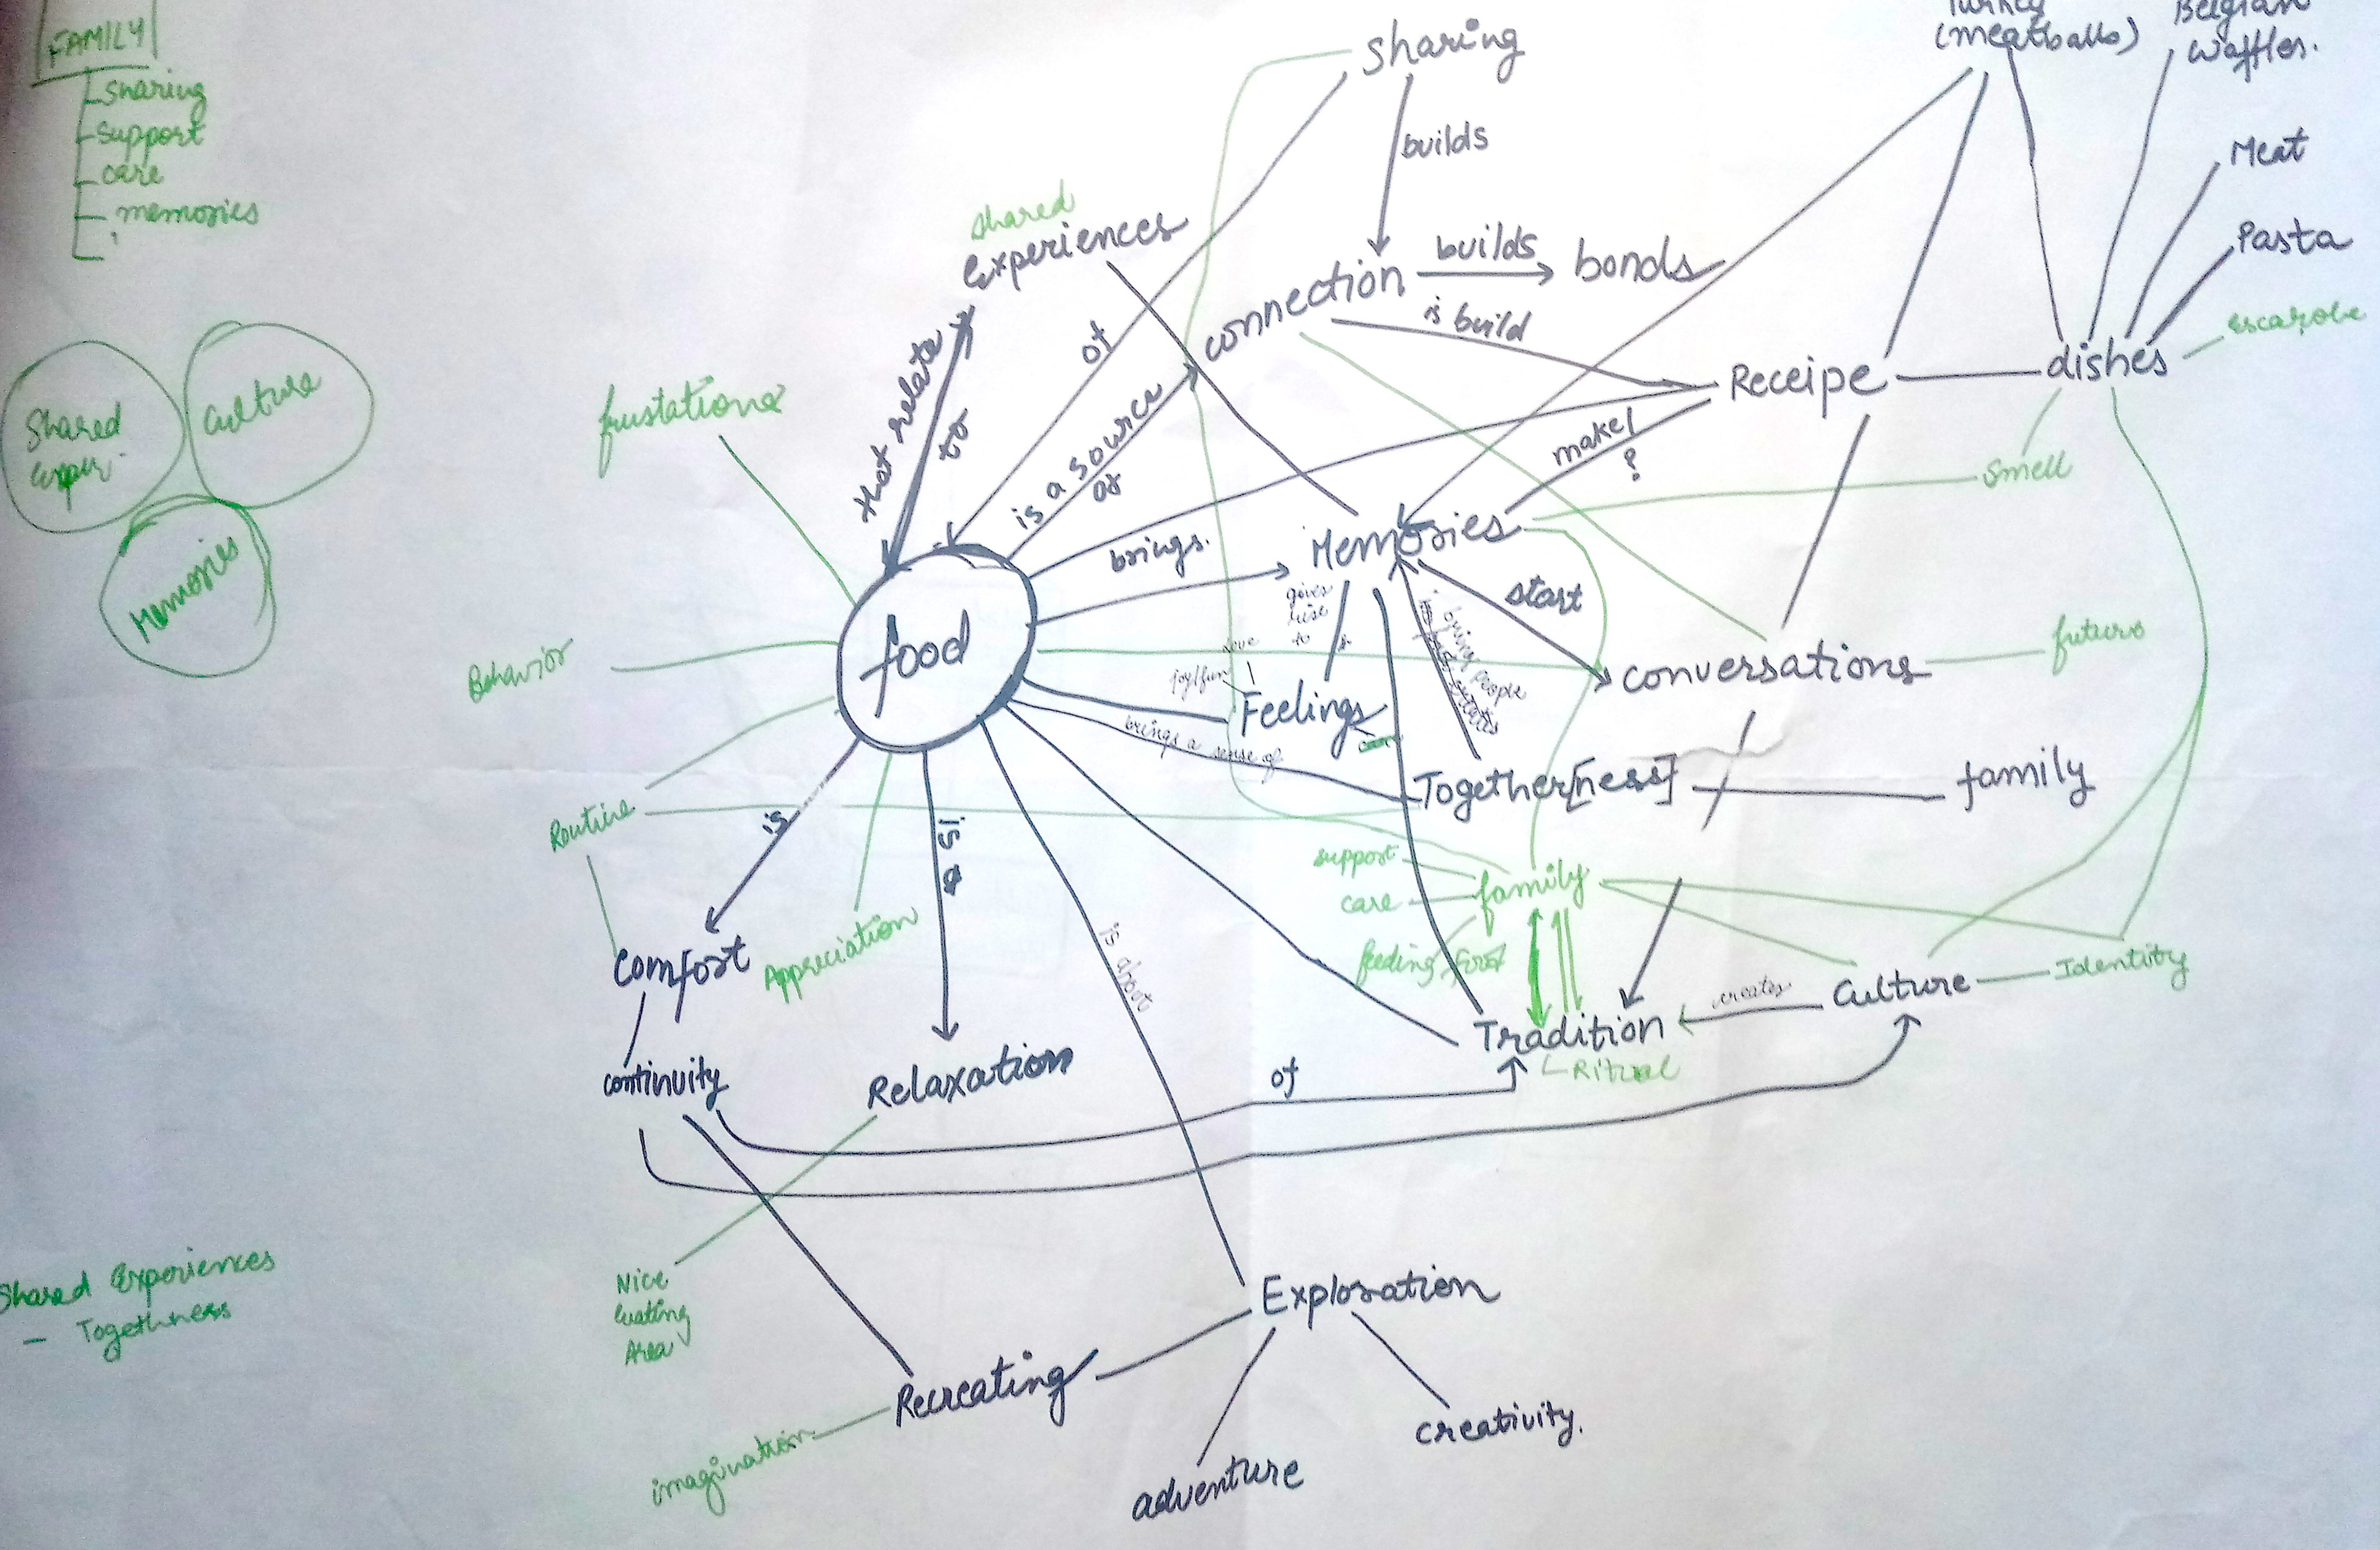 FAMILY
sharing
support
care
memories
Shared
Exper.
Culture
Memories
Shared Experiences
- Togethness
Sharing
builds
shared
Experiences
connection
builds
bonds
is build
Turkey
(meatballs)
Belgian
waffles.
Meat
Pasta
Receipe
dishes
smell
that relate
to
of
is a source
of
frustation
make/
?
brings.
Memories
start
gives
rise
to
food
Behavior
love
joy/fun
Feelings
care
bring people
conversations
future
brings a sense of
Together[ness]
family
Routine
is
is a
support
care
family
feeding
Comfort
Appreciation
is about
Tradition
Ritual
creates
Culture
Identity
continuity
Relaxation
of
Nice
Eating
Area
Exploration
Recreating
imagination
adventure
creativity.